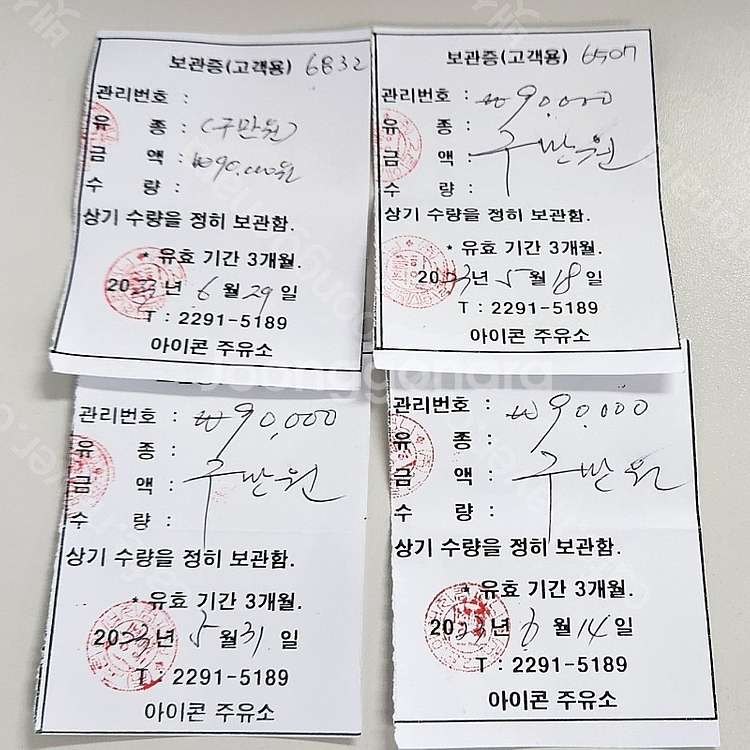 보관증(고객용) 6832
관리번호 :
유 종 : (구만원)
금 액 : ₩90,000원
수 량 :
상기 수량을 정히 보관함.
* 유효 기간 3개월.
2023년 6월 29일
T : 2291-5189
아이콘 주유소
보관증(고객용) 6507
관리번호 : ₩90,000
유 종 :
금 액 : 구만원
수 량 :
상기 수량을 정히 보관함.
* 유효 기간 3개월.
2023년 5월 18일
T : 2291-5189
아이콘 주유소
관리번호 : ₩90,000
유 종 :
금 액 : 구만원
수 량 :
상기 수량을 정히 보관함.
* 유효 기간 3개월.
2023년 5월 31일
T : 2291-5189
아이콘 주유소
관리번호 : ₩90,000
유 종 :
금 액 : 구만원
수 량 :
상기 수량을 정히 보관함.
* 유효 기간 3개월.
2023년 6월 14일
T : 2291-5189
아이콘 주유소
joonggonara